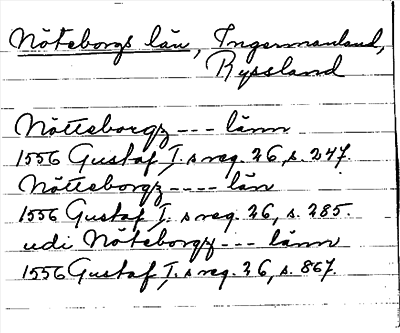 Nöteborgs län, Ingermanland,
Ryssland
Nötteborgz --- länn
1556 Gustaf I:s reg. 26, s. 247.
Nötteborgz ---- län
1556 Gustaf I:s reg. 26, s. 285.
udi Nöteborgz --- länn
1556 Gustaf I:s reg. 26, s. 867.